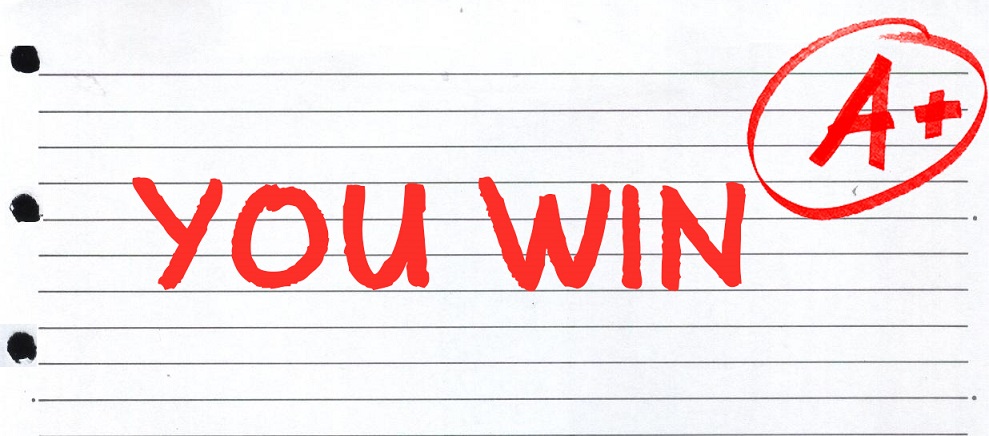 A+
YOU WIN